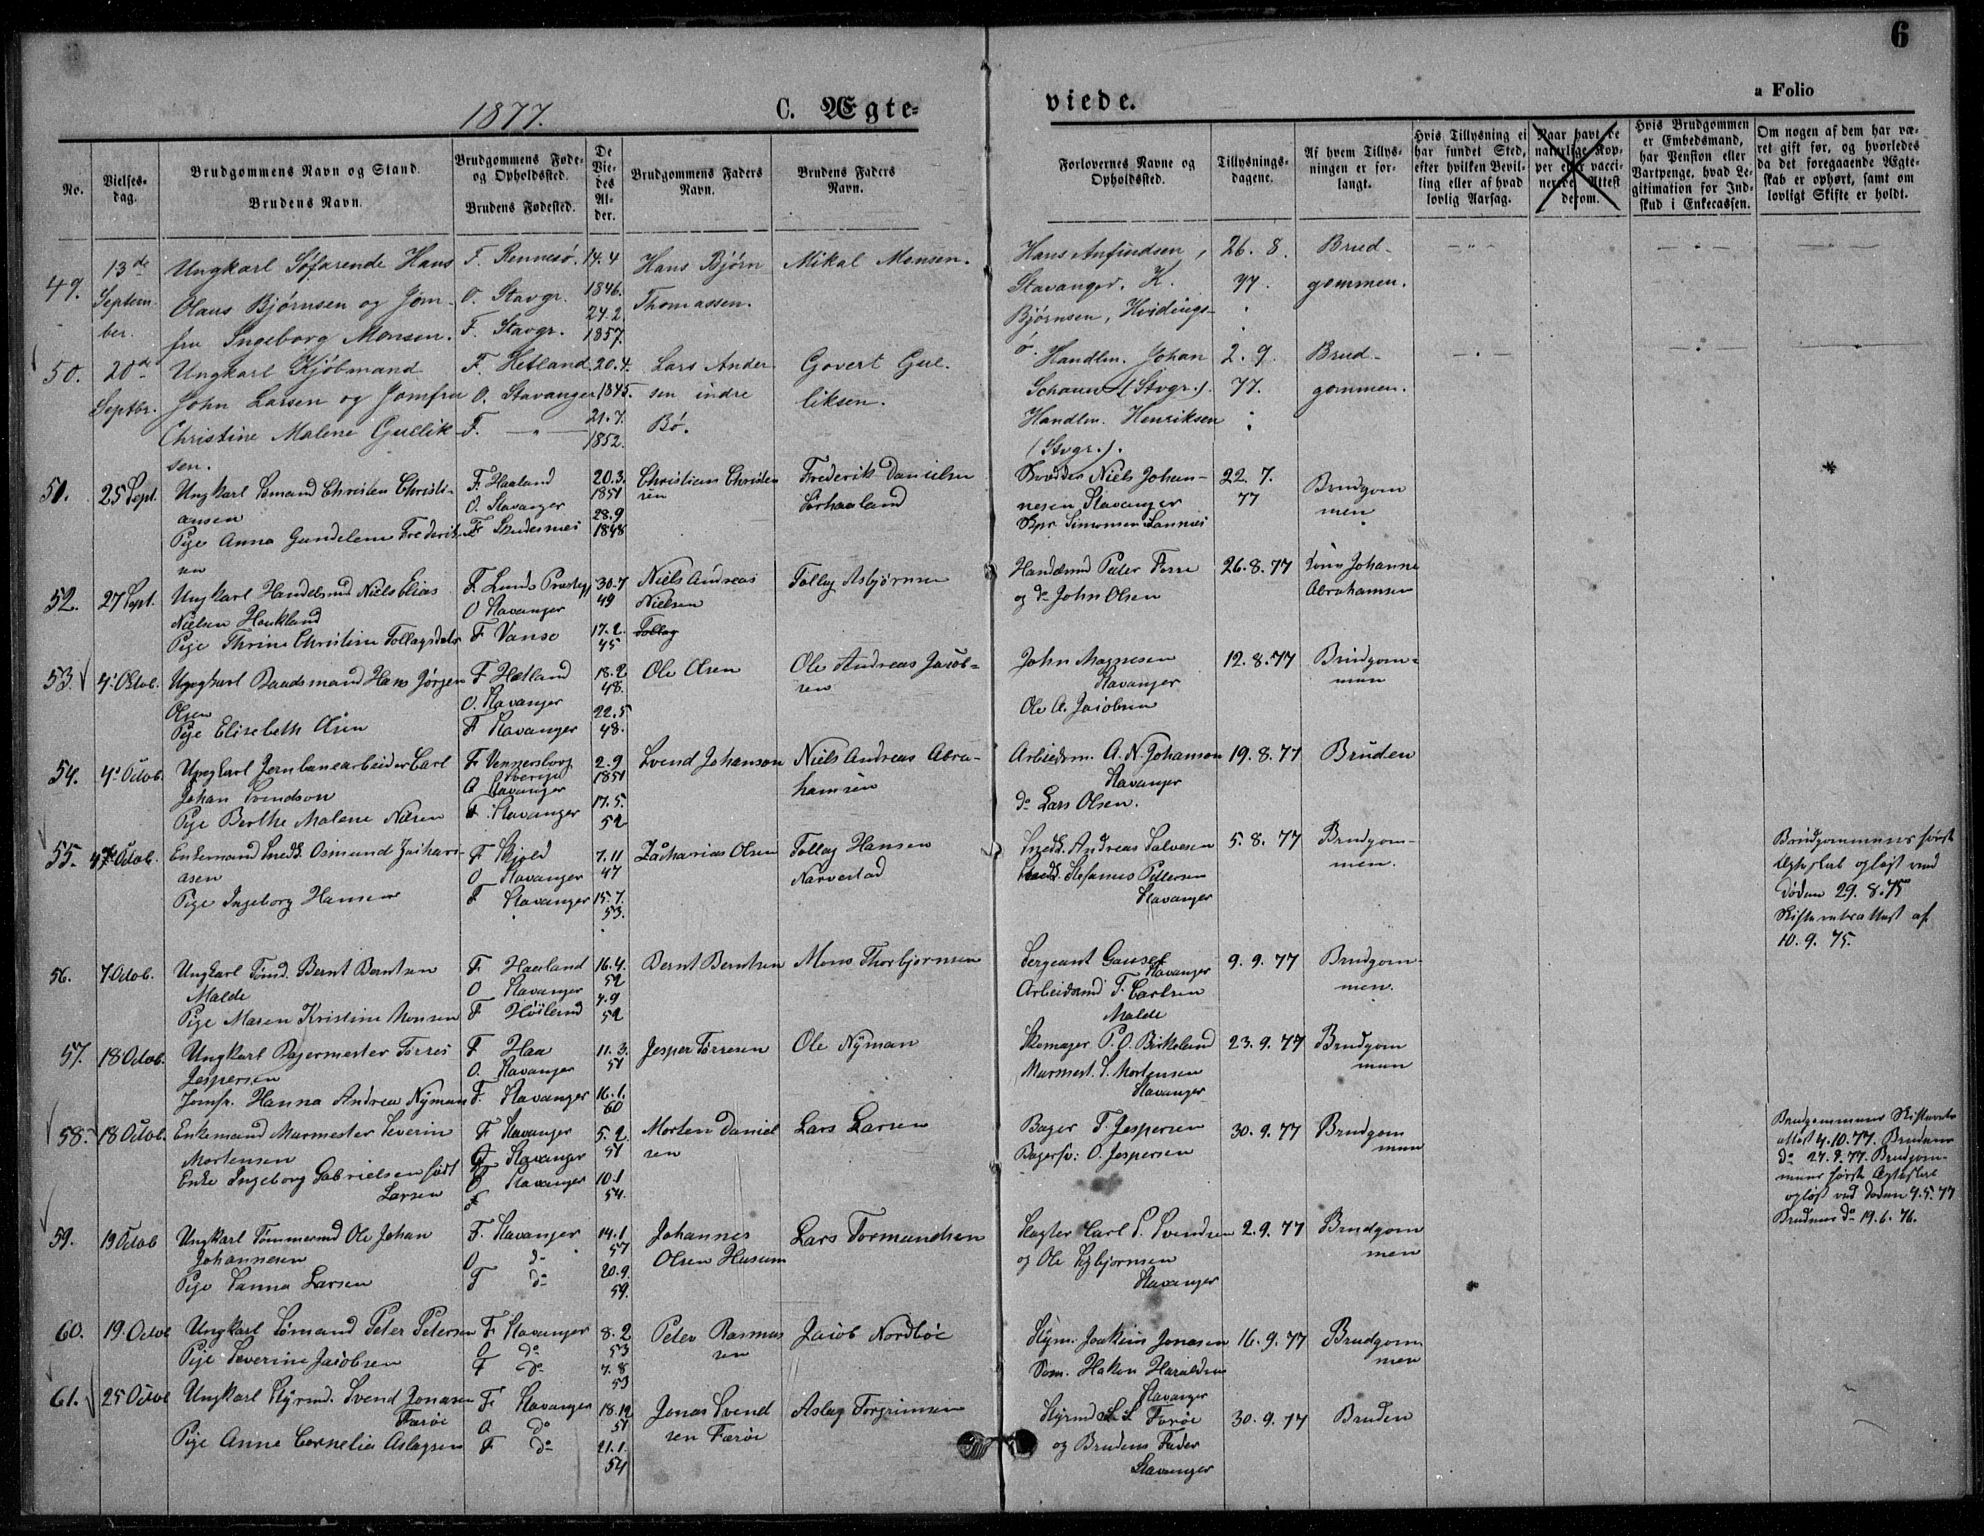 6
1877.
C. Ægte-
viede.
a Folio
No.
Vielses-
dag.
Brudgommens Navn og Stand.
Brudens Navn.
Brudgommens Føde-
og Opholdssted.
Brudens Fødested.
De
Vie-
des
Al-
der.
Brudgommens Faders
Navn.
Brudens Faders
Navn.
Forlovernes Navne og
Opholdssted.
Tillysnings-
dagene.
Af hvem Tillys-
ningen er for-
langt.
Hvis Tillysning ei
har fundet Sted,
efter hvilken Bevil-
ling eller af hvad
lovlig Aarsag.
Naar havt de
naturlige Kop-
per eller vacci-
nerede. Attest
derom.
Hvis Brudgommen
er Embedsmand,
har Pension eller
Vartpenge, hvad Le-
gitimation for Ind-
skud i Enkecassen.
Om nogen af dem har væ-
ret gift før, og hvorledes
da det foregaaende Ægte-
skab er ophørt, samt om
lovligt Skifte er holdt.
49.
13de
Septem-
ber.
Ungkarl Søfarende Hans
Olaus Bjørnsen og Jom-
fru Ingeborg Monsen.
F. Rennesø.
O. Stavgr.
F. Stavgr.
14.4
1846.
24.2.
1857.
Hans Bjørn
Thomassen.
Mikal Monsen.
Hans Anfindsen,
Stavanger. K.
Bjørnsen, Hvidings-
ø.
26. 8.
77.
Brud-
gommen.
50.
20de
Septbr.
Ungkarl Kjøbmand
John Larsen og Jomfru
Christine Malene Gullik-
sen.
F. Hetland
O. Stavanger
F. — " —
20.4.
1845.
21.7.
1852.
Lars Ander
sen indre
Bø.
Govert Gul.
liksen.
Handlm. Johan
(Stvgr.).
Handlm. Henriksen
(Stvgr.).
2. 9.
77.
Brud-
gommen.
51.
25 Sept.
Ungkarl Sømand Christen Christi-
ansen
Pige Anna Gundelene Frederik
F. Haaland
O. Stavanger
F. Skudesnes
20.3.
1851
28.9
1848
Christian Christen
sen
Frederik Danielsen
Sørhaaland
Niels Johan-
nesen Stavanger
Simonsen
22. 7.
77
Brudgom
men
52.
27 Sept.
Ungkarl Handelsmd Niels Elias
Nielsen Haukland
Pige Thrine Christine Tollagsdatr
F. Lunds Prestegj
O Stavanger
F Vanse
30.7
49
17.2.
45
Niels Andreas
Nielsen
Tollag
Tollag Asbjørnsen
Handelsmd Peter
og do John Olsen
26.8.77
Johanne
Abrahamsen
53.
4' Oktob.
Ungkarl Baadsmand Hans Jørgen
Olsen
Pige Elisebeth Olsen
F Hetland
O. Stavanger
F Stavanger
18.2
48.
22.5
48.
Ole Olsen
Ole Andreas Jacob-
sen
John Magnesen
Stavanger
Ole A. Jacobsen
12.8.77
Brudgom-
men
54.
4' Octob.
Ungkarl Jernbanearbeider Carl
Johan Svendson
Pige Berthe Malene Nilsen
F Vennersborg
Sverige
O Stavanger
F. Stavanger
2.9
1851
17.5.
52
Svend Johanson
Niels Andreas Abra-
hamsen
Arbeidsm. A. N. Johanson
Stavanger
do Lars Olsen.
19.8.77
Bruden
55.
4 Octob.
Enkemand Snedk. Osmund Zachari-
asen
Pige Ingeborg Hansen
F Skjold
O Stavanger
F Stavanger
7.11
47
15.7.
53.
Zacharias Olsen
Tollag Hansen
Narvestad
Snedk. Andreas Salvesen
Stefanus Pettersen
Stavanger
5.8.77
Brudgom-
men.
Brudgommens først
Ægteskab opløst ved
Døden 29.8.75
Skifteretsattest af
10.9.75.
56.
7 Octob.
Ungkarl Tømd. Bernt Berntsen
Malde
Pige Maren Kristine Monsen
F Haaland
O Stavanger
F Høiland
16.4.
52
4.9
52
Bernt Berntsen
Mons Thorbjørnsen
Sergeant Gausel
Stavanger
Arbeidsmd T. Carlsen
Malde
9.9.77
Brudgom-
men.
57.
18 Octob.
Ungkarl Bagermester Torres
Jespersen
Jomfr. Hanna Andrea Nyman
F Haa
O. Stavanger
F. Stavanger
11.3.
51
16.1.
60
Jesper Torresen
Ole Nyman
Skomager P. O. Birkeland
Murmest. S. Mortensen
Stavanger
23.9.77
Brudgom
men
58.
18 Octob.
Enkemand Murmester Severin
Mortensen
Enke Ingeborg Gabrielsen født
Larsen
F Stavanger
O Stavanger
O Stavanger
F
5.2
51
10.1
54.
Morten Daniel
sen
Lars Larsen
Bager T. Jespersen
Bagersv: O. Jespersen
30.9.77
Brudgom
men
Brudgommens Skifterets
attest 4.10.77. Brudens
do 27.9.77. Brudgom-
mens første Ægteskab
opløst ved Døden 4.5.77
Brudens do 19.6.76.
59.
19 Octob
Ungkarl Tømmermd Ole Johan
Johannesen
Pige Sanna Larsen
F. Stavanger
O do
F do
14.1
57
20.9.
59.
Johannes
Olsen Husum
Lars Tormundsen
Slagter Carl S. Svendsen
og Ole Sigbjørnsen
Stavanger
2.9.77
Brudgom
men
60.
19. Octob
Ungkarl Sømand Peter Petersen
Pige Severine Jacobsen
F Stavanger
O do
F do
8.2
53
7.8
53
Peter Rasmus
sen
Jacob Nordbøe
Styrm. Joakim Jonasen
Søm. Hakon Haraldsen
Stavanger
16.9.77
Brudgom
men
61.
25 Octob
Ungkarl Styrmd. Svend Jonasen
Færøe
Pige Anne Cornelia Aslagsen
F. Stavanger
O do
F do
18.12
51
21.1.
54
Jonas Svend
sen Færøe
Aslag Torgrimsen
Styrmd S. S. Færøe
og Brudens Fader
Stavanger
30.9.77
Bruden